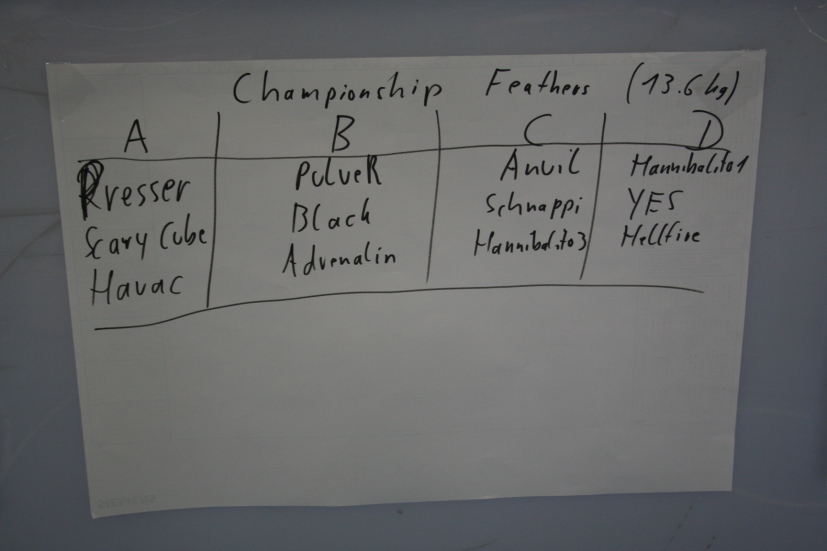 Championship Feathers (13.6 kg)
A B C D
Presser PulveR Anvil Hannibalito1
Scary Cube Black Schnappi YES
Havac Adrenalin Hannibalito3 Hellfire